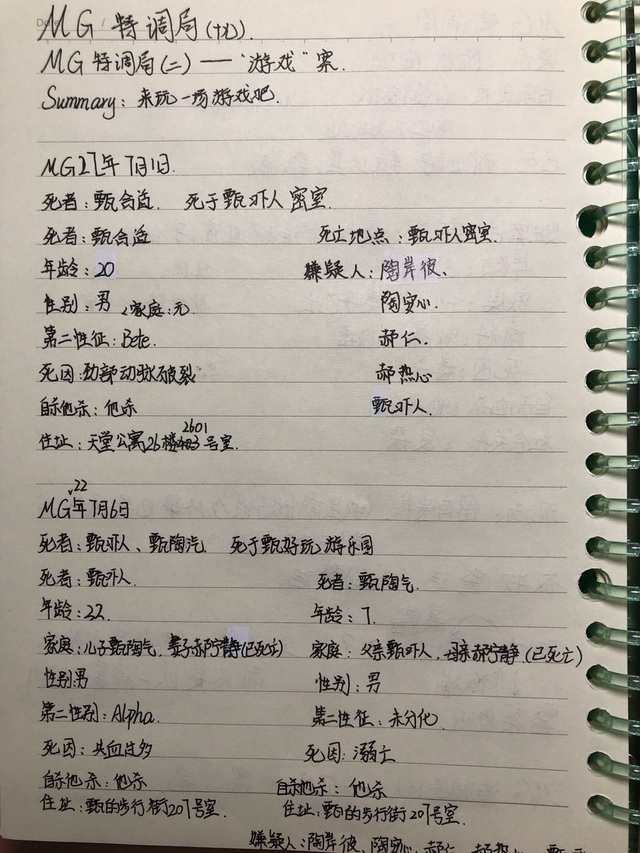 MG特调局(十九)
MG特调局(二)——"游戏"案.
Summary: 来玩一场游戏吧.
MG22年7月1日.
死者:甄合适. 死于甄吓人密室.
死者:甄合适 死亡地点:甄吓人密室.
年龄:20 嫌疑人:陶岸彼、
性别:男 家庭:无 陶安心.
第二性征:Beta. 郝仁.
死因:劲部动脉破裂 郝热心
自杀他杀:他杀 甄吓人.
住址:天堂公寓26楼2601号室.
MG22年7月6日
死者:甄吓人、甄陶汽. 死于甄好玩游乐园
死者:甄吓人. 死者:甄陶气.
年龄:27. 年龄:7.
家庭:儿子甄陶气,妻子郝宁静(已死亡) 家庭:父亲甄吓人,母亲郝宁静(已死亡)
性别男 性别:男
第二性别:Alpha. 第二性征:未分化.
死因:失血过多 死因:溺亡
自杀他杀:他杀 自杀他杀:他杀
住址:甄的步行街207号室. 住址:甄的步行街207号室.
嫌疑人:陶岸彼、陶安心、郝仁、郝热心、甄